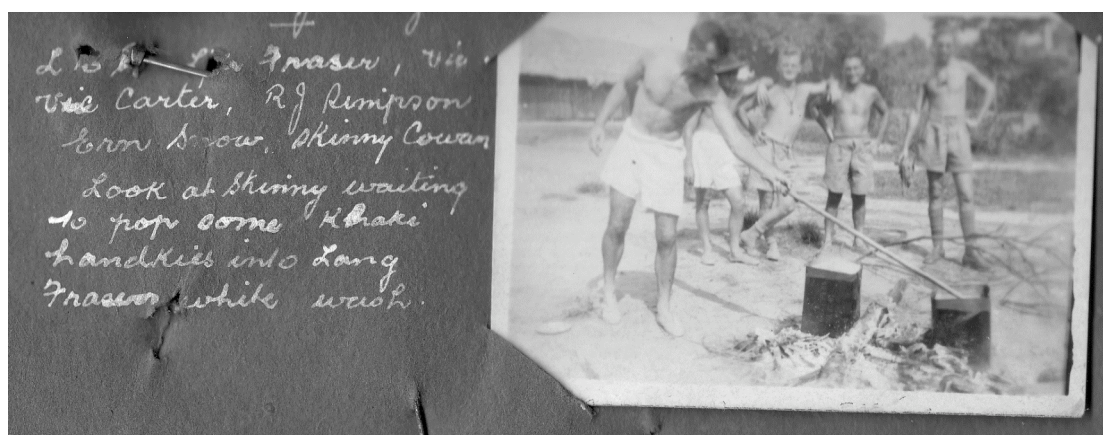 L to R Fraser, Vic
Vic Carter, R J Simpson
Ern Snow, Skinny Cowan
Look at Skinny waiting
to pop some Khaki
handkies into Lang
Fraser white wash.